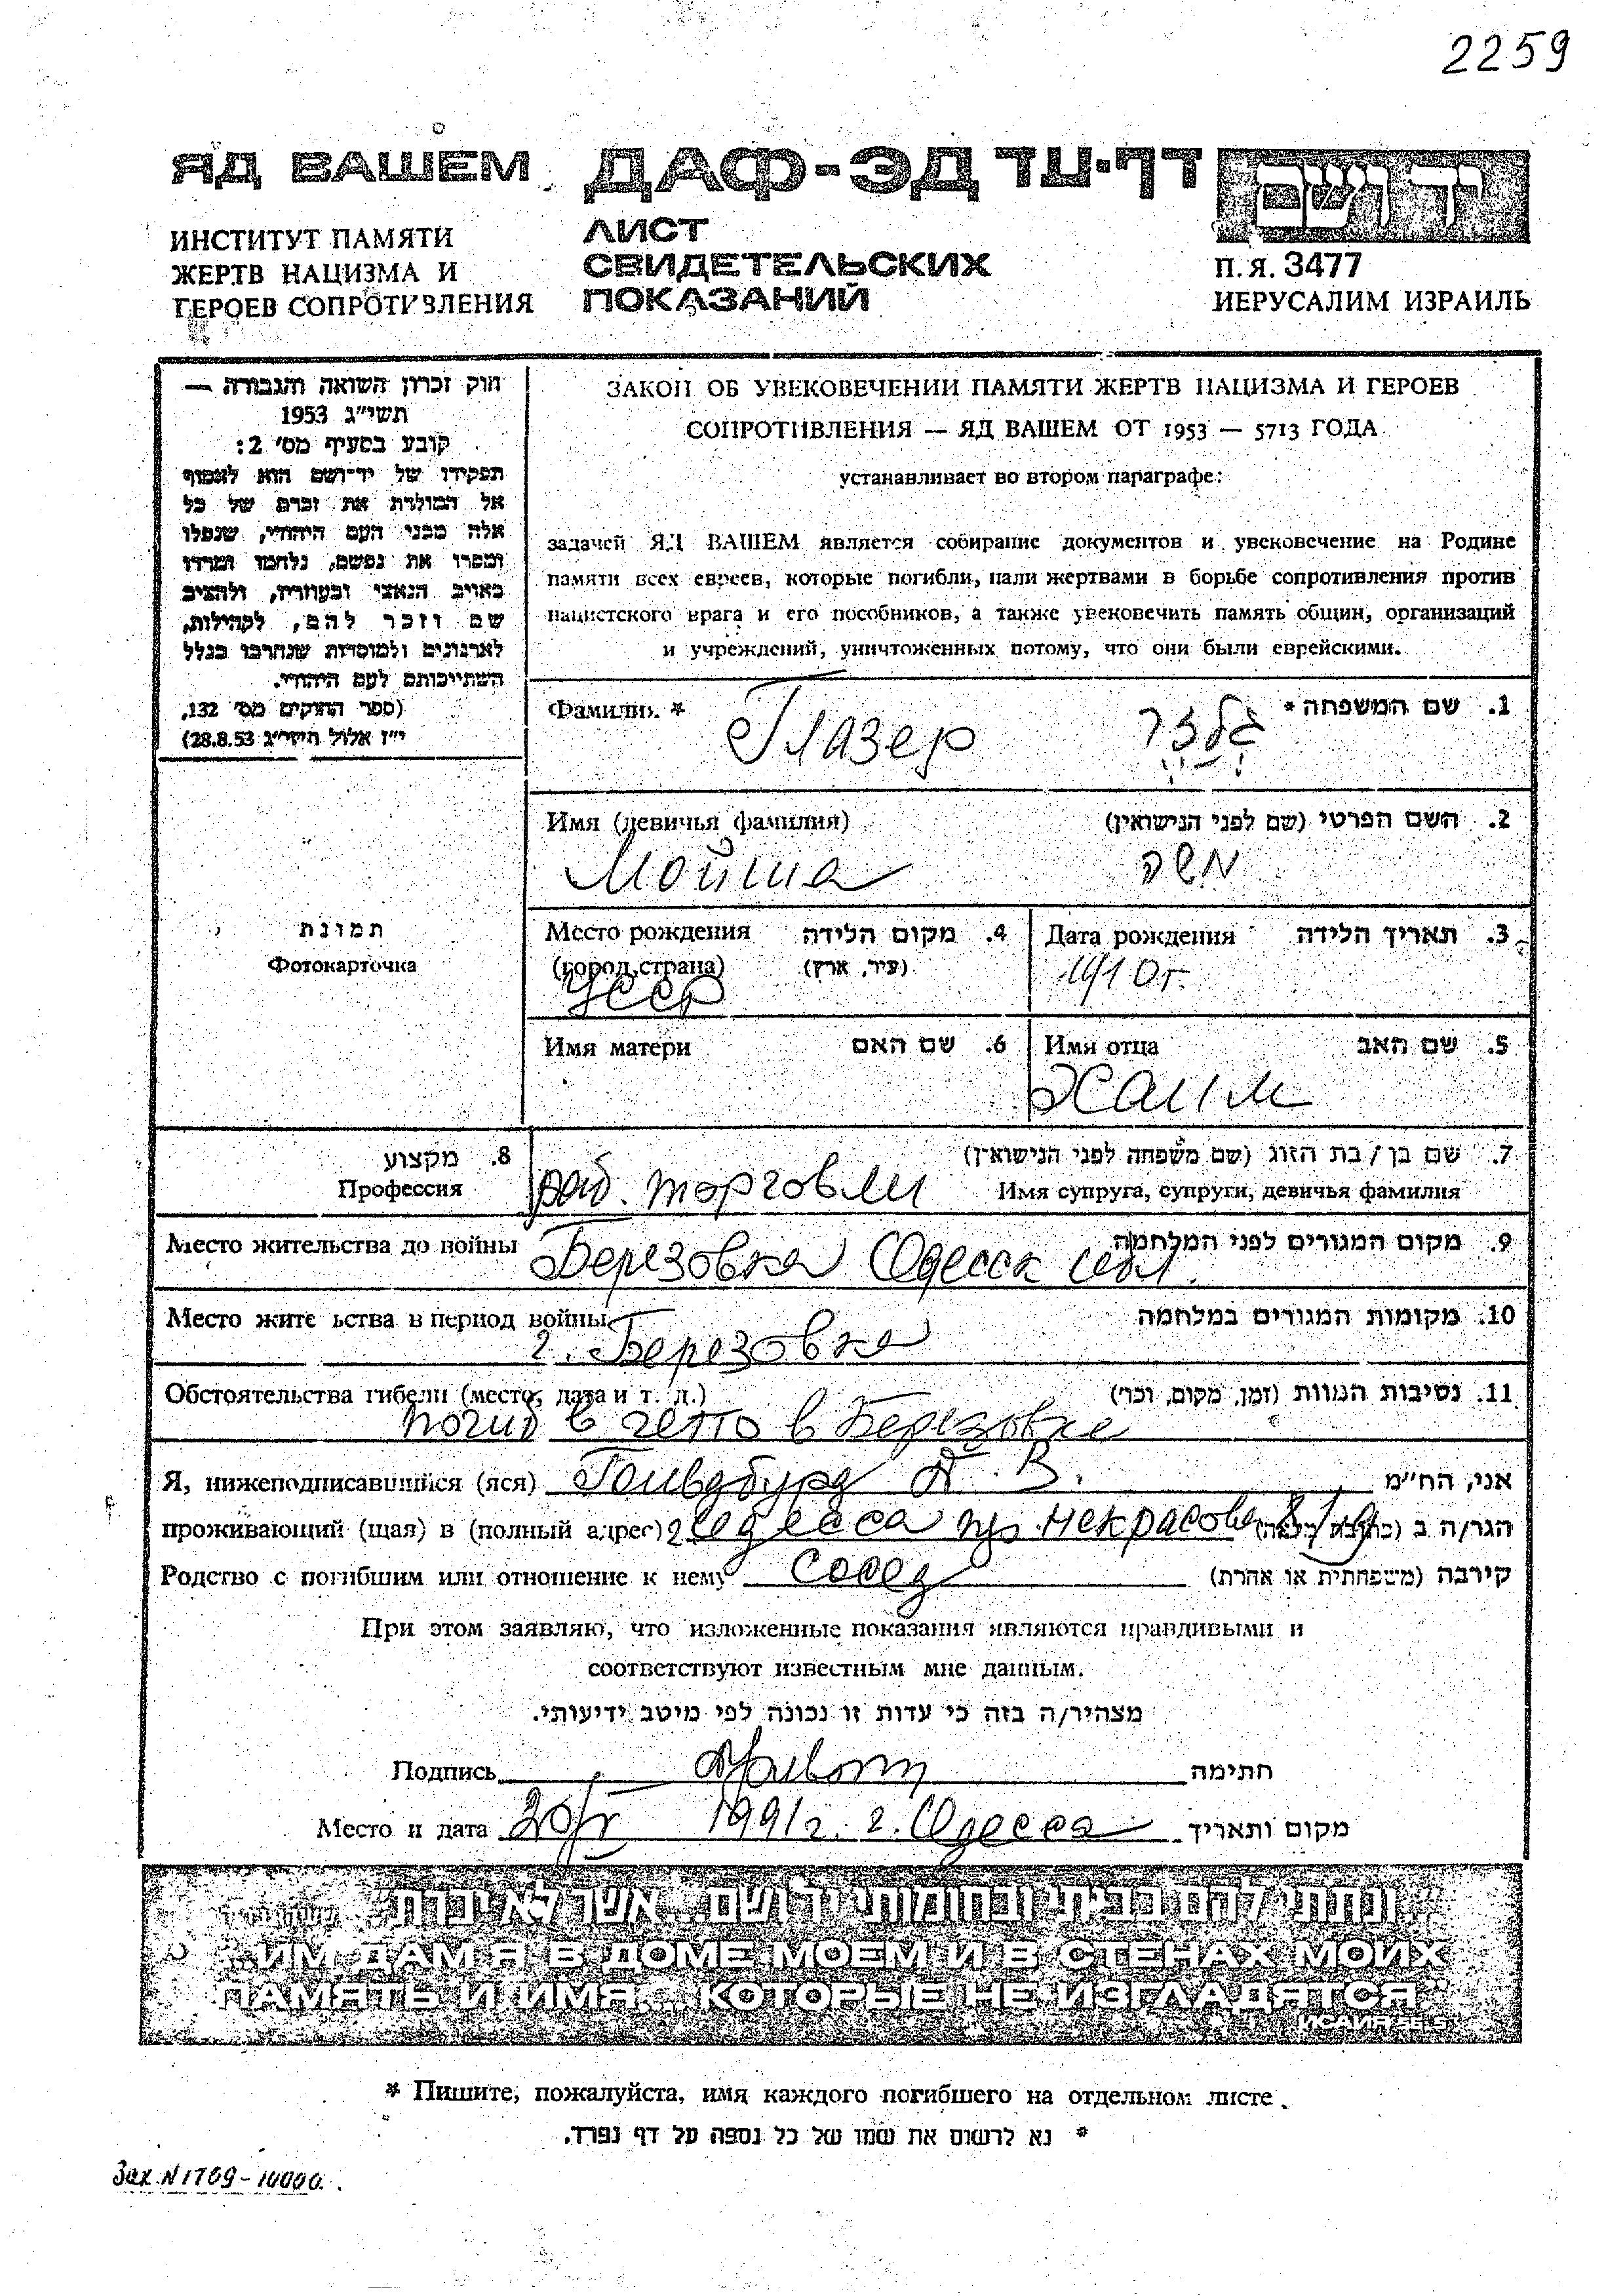 2259
ЯД ВАШЕМ ДАФ-ЭД דף-עד יד ושם
ИНСТИТУТ ПАМЯТИ
ЖЕРТВ НАЦИЗМА И
ГЕРОЕВ СОПРОТИВЛЕНИЯ
ЛИСТ
СВИДЕТЕЛЬСКИХ
ПОКАЗАНИЙ
П.Я. 3477
ИЕРУСАЛИМ ИЗРАИЛЬ
חוק זכרון השואה והגבורה —
תשי״ג 1953
קובע בסעיף מס׳ 2:
תפקידו של יד-ושם הוא לאסוף
אל המולדת את זכרם של כל
אלה מבני העם היהודי, שנפלו
ומסרו את נפשם, נלחמו ומרדו
באויב הנאצי ובעוזריו, ולהציב
שם וזכר להם, לקהילות,
לארגונים ולמוסדות שנחרבו בגלל
השתייכותם לעם היהודי.
(ספר החוקים מס׳ 132,
י״ז אלול תשי״ג 28.8.53)
ЗАКОН ОБ УВЕКОВЕЧЕНИИ ПАМЯТИ ЖЕРТВ НАЦИЗМА И ГЕРОЕВ
СОПРОТИВЛЕНИЯ — ЯД ВАШЕМ ОТ 1953 — 5713 ГОДА
устанавливает во втором параграфе:
задачей ЯД ВАШЕМ является собирание документов и увековечение на Родине
памяти всех евреев, которые погибли, пали жертвами в борьбе сопротивления против
нацистского врага и его пособников, а также увековечить память общин, организаций
и учреждений, уничтоженных потому, что они были еврейскими.
Фамилия * 1. שם המשפחה *
Глазер גלזר
Имя (девичья фамилия) 2. השם הפרטי (שם לפני הנישואין)
Мойша משה
תמונת
Фотокарточка
Место рождения 4. מקום הלידה
(город, страна) (עיר, ארץ)
УССР
Дата рождения 3. תאריך הלידה
1910г.
Имя матери 6. שם האם
Имя отца 5. שם האב
Хаим
8. מקצוע
Профессия
раб. торговли
7. שם בן / בת הזוג (שם משפחה לפני הנישואין)
Имя супруга, супруги, девичья фамилия
Место жительства до войны 9. מקום המגורים לפני המלחמה
Березовка Одесск обл.
Место жите ьства в период войны 10. מקומות המגורים במלחמה
г. Березовка
Обстоятельства гибели (место, дата и т. д.) 11. נסיבות המוות (זמן, מקום, וכו׳)
погиб в гетто в Березовке
Я, нижеподписавшийся (яся) А. В. אני, הח״מ
проживающий (щая) в (полный адрес) г Одесса пр Некрасова הגר/ה ב (כתובת מלאה)
Родство с погибшим или отношение к нему сосед קירבה (משפחתית או אחרת)
При этом заявляю, что изложенные показания являются правдивыми и
соответствуют известным мне данным.
מצהיר/ה בזה כי עדות זו נכונה לפי מיטב ידיעותי.
Подпись חתימה
Место и дата 1991г. г. Одесса מקום ותאריך
״...ונתתי להם בביתי ובחומותי יד ושם... אשר לא יכרת״
"...ИМ ДАМ Я В ДОМЕ МОЕМ И В СТЕНАХ МОИХ
ПАМЯТЬ И ИМЯ... КОТОРЫЕ НЕ ИЗГЛАДЯТСЯ."
ИСАИЯ 56.5
* Пишите, пожалуйста, имя каждого погибшего на отдельном листе.
* נא לרשום את שמו של כל נספה על דף נפרד.
Зак. N 1709 - 10000.